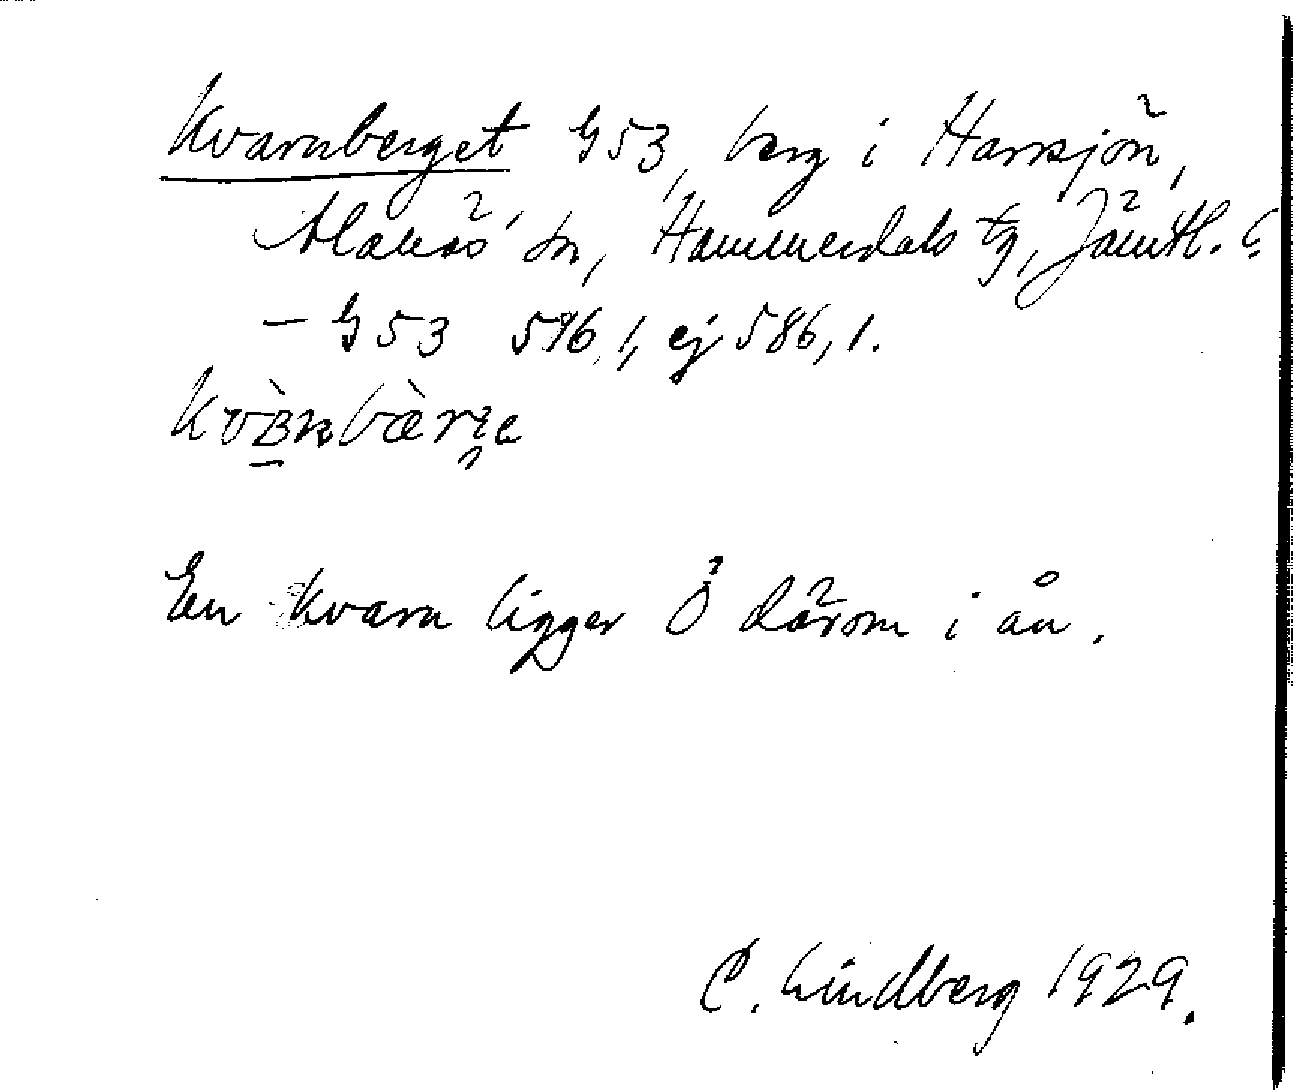 Kvarnberget G53, berg i Harrsjön,
Alanäs sn, Hammerdals tg, Jämtl. l.
– G53 596,1, ej 586,1.
En kvarn ligger Ö därom i ån.
C. Lindberg 1929.